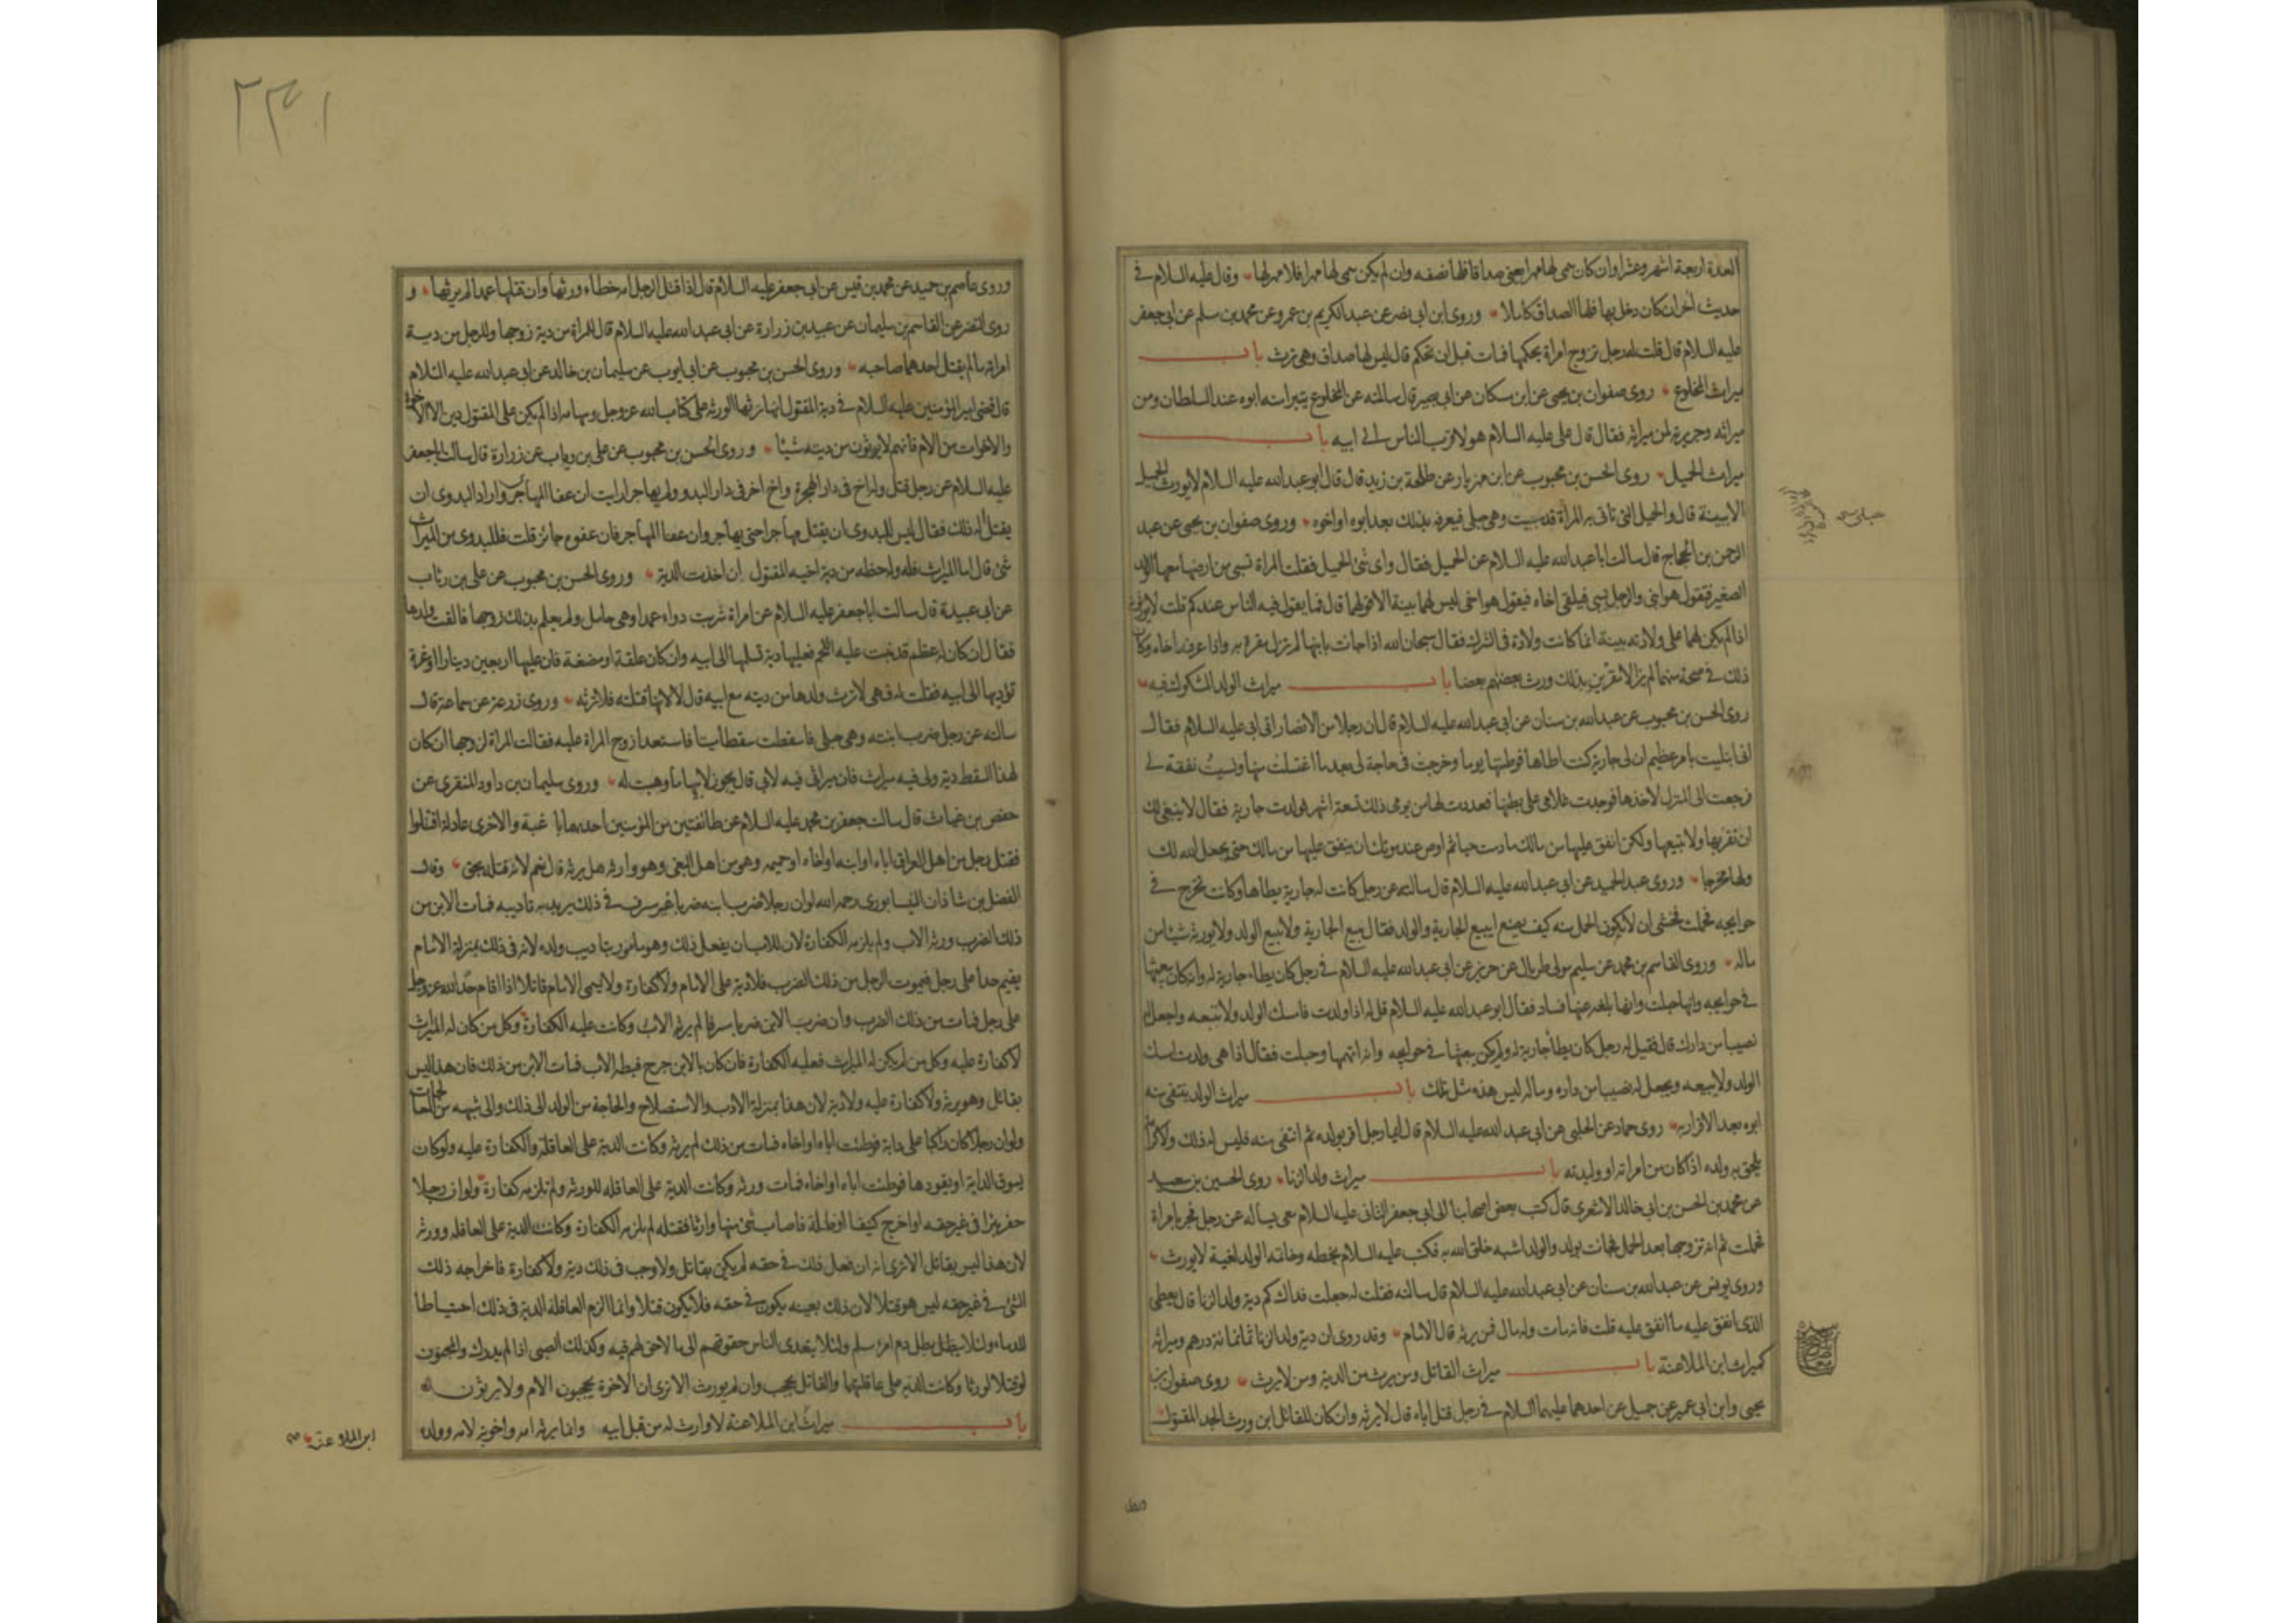 العدة اربعة اشهر وعشرا وان كان سمى لها مهرا يعنى صداقا فلها نصفه وان لم يكن سمى لها مهرا فلا مهر لها وقال عليه السلام فى
حديث آخر ان كان دخل بها فلها الصداق كاملا وروى ابن ابى نصر عن عبد الكريم بن عمرو عن محمد بن مسلم عن ابى جعفر
عليه السلام قال قلت له رجل تزوج امراة بحكمها فمات قبل ان تحكم قال ليس لها صداق وهى ترث باب
ميراث المخلوع روى صفوان بن يحيى عن ابن مسكان عن ابى بصير قال سالته عن المخلوع يتبرأ منه ابوه عند السلطان ومن
ميراثه وجريرته لمن ميراثه فقال قال على عليه السلام هو لاقرب الناس الى ابيه باب
ميراث الحميل روى الحسن بن محبوب عن ابن مهزيار عن طلحة بن زيد قال قال ابو عبد الله عليه السلام لا يورث الحميل
الا ببينة قال والحميل التى تاتى به المرأة قد سبيت وهى حبلى فيعرفه بذلك بعد ابوه او اخوه وروى صفوان بن يحيى عن عبد
الرحمن بن الحجاج قال سالت ابا عبد الله عليه السلام عن الحميل فقال واى شئ الحميل فقلت المراة تسبى من ارضها معها الولد
الصغير فتقول هو ابنى والرجل يسبى فيلقى اخاه فيقول هو اخى ليس لهما بينة الا قولهما قال فما يقول فيه الناس عندكم قلت لا يورثونهم
اذا لم يكن لهما على ولادته بينة انما كانت ولادة فى الشرك فقال سبحان الله اذا جاءت بابنها لم تزل مقرة به واذا عرف اخاه وكان
ذلك فى صحة منهما لم يزالا مقرين بذلك ورث بعضهم بعضا باب ميراث الولد المشكوك فيه
روى الحسن بن محبوب عن عبد الله بن سنان عن ابى عبد الله عليه السلام قال ان رجلا من الانصار اتى ابى عليه السلام فقال
انى ابتليت بامر عظيم ان لى جارية كنت اطاها فوطئتها يوما وخرجت فى حاجة لى بعد ما اغتسلت منها ونسيت نفقة لى
فرجعت الى المنزل لاخذها فوجدت غلامى على بطنها فعددت لها من يومى ذلك تسعة اشهر فولدت جارية فقال لا ينبغى لك
ان تقربها ولا تبيعها ولكن انفق عليها من مالك ما دمت حيا ثم اوص عند موتك ان ينفق عليها من مالك حتى يجعل الله لك
ولها مخرجا وروى عبد الحميد عن ابى عبد الله عليه السلام قال سالته عن رجل كانت له جارية يطاها وكانت تخرج فى
حوايجه فحملت فخشى ان لا يكون الحمل منه كيف يصنع ايبيع الجارية والولد فقال يبيع الجارية ولا يبيع الولد ولا يورثه شيئا من
ماله وروى القاسم بن محمد عن سليم مولى طربال عن حريز عن ابى عبد الله عليه السلام فى رجل كان يطاء جارية له وانه كان يبعثها
فى حوايجه وانها حبلت وانها بلغه عنها فساد فقال ابو عبد الله عليه السلام قل له اذا ولدت فامسك الولد ولا تبيعه واجعل له
نصيبا من دارك قال فقيل له رجل كان يطأ جارية له ولم يكن يبعثها فى حوايجه وانه اتهمها وحبلت فقال اذا هى ولدت امسك
الولد ولا يبيعه ويجعل له نصيبا من داره وماله ليس هذه مثل تلك باب ميراث الولد ينتفى منه
ابوه بعد الاقرار به روى حماد عن الحلبى عن ابى عبد الله عليه السلام قال ايما رجل اقر بولده ثم انتفى منه فليس له ذلك ولا كرامة
يلحق به ولده اذا كان من امراته او وليدته باب ميراث ولد الزنا روى الحسين بن سعيد
عن محمد بن الحسن بن ابى خالد الاشعرى قال كتب بعض اصحابنا الى ابى جعفر الثانى عليه السلام معى يساله عن رجل فجر بامراة
فحملت ثم انه تزوجها بعد الحمل فجاءت بولد والولد اشبه خلق الله به فكتب عليه السلام بخطه وخاتمه الولد لغية لا يورث
وروى يونس عن عبد الله بن سنان عن ابى عبد الله عليه السلام قال سالته فقلت له جعلت فداك كم دية ولد الزنا قال يعطى
الذى انفق عليه ما انفق عليه قلت فانه مات وله مال فمن يرثه قال الامام وقد روى ان دية ولد الزنا ثمانمائة درهم وميراثه
كميراث ابن الملاعنة باب ميراث القاتل ومن يرث من الدية ومن لا يرث روى صفوان بن
يحيى وابن ابى عمير عن جميل عن احدهما عليهما السلام فى رجل قتل اباه قال لا يرثه وان كان للقاتل ابن ورث الجد المقتول
وروى عاصم بن حميد عن محمد بن قيس عن ابى جعفر عليه السلام قال اذا قتل الرجل امه خطاء ورثها وان قتلها عمدا لم يرثها و
روى النضر عن القاسم بن سليمان عن عبيد بن زرارة عن ابى عبد الله عليه السلام قال للمراة من دية زوجها وللرجل من دية
امراته ما لم يقتل احدهما صاحبه وروى الحسن بن محبوب عن ابى ايوب عن سليمان بن خالد عن ابى عبد الله عليه السلام
قال قضى امير المؤمنين عليه السلام فى دية المقتول انها يرثها الورثة على كتاب الله عز وجل وسهامه اذا لم يكن على المقتول دين الا الاخوة
والاخوات من الام فانهم لا يرثون من ديته شيئا وروى الحسن بن محبوب عن على بن رياب عن زرارة قال سالت ابا جعفر
عليه السلام عن رجل قتل وله اخ فى دار الهجرة واخ اخر فى دار البدو ولم يهاجر ارايت ان عفا المهاجر واراد البدوى ان
يقتل اله ذلك فقال ليس للبدوى ان يقتل مهاجرا حتى يهاجر وان عفا المهاجر فان عفوه جائز قلت فللبدوى من الميراث
شئ قال اما الميراث فله وله حظه من دية اخيه المقتول ان اخذت الدية وروى الحسن بن محبوب عن على بن رئاب
عن ابى عبيدة قال سالت ابا جعفر عليه السلام عن امراة شربت دواء عمدا وهى حامل ولم يعلم بذلك زوجها فالقت ولدها
فقال ان كان له عظم قد نبت عليه اللحم فعليها دية تسلمها الى ابيه وان كان علقة او مضغة فان عليها اربعين دينارا او غرة
تؤديها الى ابيه فقلت له فهى لا ترث ولدها من ديته مع ابيه قال لا لانها قتلته فلا ترثه وروى زرعة عن سماعة قال
سالته عن رجل ضرب ابنته وهى حبلى فاسقطت سقطا ميتا فاستعدا زوج المراة عليه فقالت المراة لزوجها ان كان
لهذا السقط دية ولى فيه ميراث فان ميراثى فيه لابى قال يجوز لابيها ما وهبت له وروى سليمان بن داود المنقرى عن
حفص بن غياث قال سالت جعفر بن محمد عليه السلام عن طائفتين من المؤمنين احدهما باغية والاخرى عادلة اقتتلوا
فقتل رجل من اهل العراق اباه او ابنه او اخاه او حميمه وهو من اهل البغى وهو وارثه هل يرثه قال نعم لانه قتله بحق وقال
الفضل بن شاذان النيسابورى رحمه الله لو ان رجلا ضرب ابنه ضربا غير مسرف فى ذلك يريد به تاديبه فمات الابن من
ذلك الضرب ورثه الاب ولم يلزمه الكفارة لان للاب ان يفعل ذلك وهو مامور بتاديب ولده لانه فى ذلك بمنزلة الامام
يقيم حدا على رجل فيموت الرجل من ذلك الضرب فلا دية على الامام ولا كفارة ولا يسمى الامام قاتلا اذا اقام حد الله عز وجل
على رجل فمات من ذلك الضرب وان ضرب الابن ضربا مسرفا لم يرثه الاب وكانت عليه الكفارة وكل من كان له الميراث
لا كفارة عليه وكل من لم يكن له الميراث فعليه الكفارة فان كان بالابن جرح فبطه الاب فمات الابن من ذلك فان هذا ليس
بقاتل وهو يرثه ولا كفارة عليه ولا دية لان هذا بمنزلة الادب والاستصلاح والحاجة من الولد الى ذلك والى شبهه من المعالجات
ولو ان رجلا كان راكبا على دابة فوطئت اباه او اخاه فمات من ذلك لم يرثه وكانت الدية على العاقلة والكفارة عليه ولو كان
يسوق الدابة او يقودها فوطئت اباه او اخاه فمات ورثه وكانت الدية على العاقله للورثة ولم تلزمه كفارة ولو ان رجلا
حفر بئرا فى غير حقه او اخرج كنيفا او ظلة فاصاب شئ منها وارثا فقتله لم يلزمه الكفارة وكانت الدية على العاقله وورثه
لان هذا ليس بقاتل الا ترى انه ان فعل ذلك فى حقه لم يكن بقاتل ولا وجب فى ذلك دية ولا كفارة فاخراجه ذلك
الشئ فى غير حقه ليس هو قتلا لان ذلك بعينه يكون فى حقه فلا يكون قتلا وانما الزم العاقلة الدية فى ذلك احتياطا
للدماء ولئلا يبطل دم امرء مسلم ولئلا يتعدى الناس حقوقهم الى ما لا حق لهم فيه وكذلك الصبى اذا لم يدرك والمجنون
لو قتلا لورثا وكانت الدية على عاقلتهما والقاتل يحجب وان لم يورث الا ترى ان الاخوة يحجبون الام ولا يرثون
باب ميراث ابن الملاعنة لا وارث له من قبل ابيه وانما يرثه امه واخوته لامه وولده
ابن الملاعنة
وروى
٢٣٤١